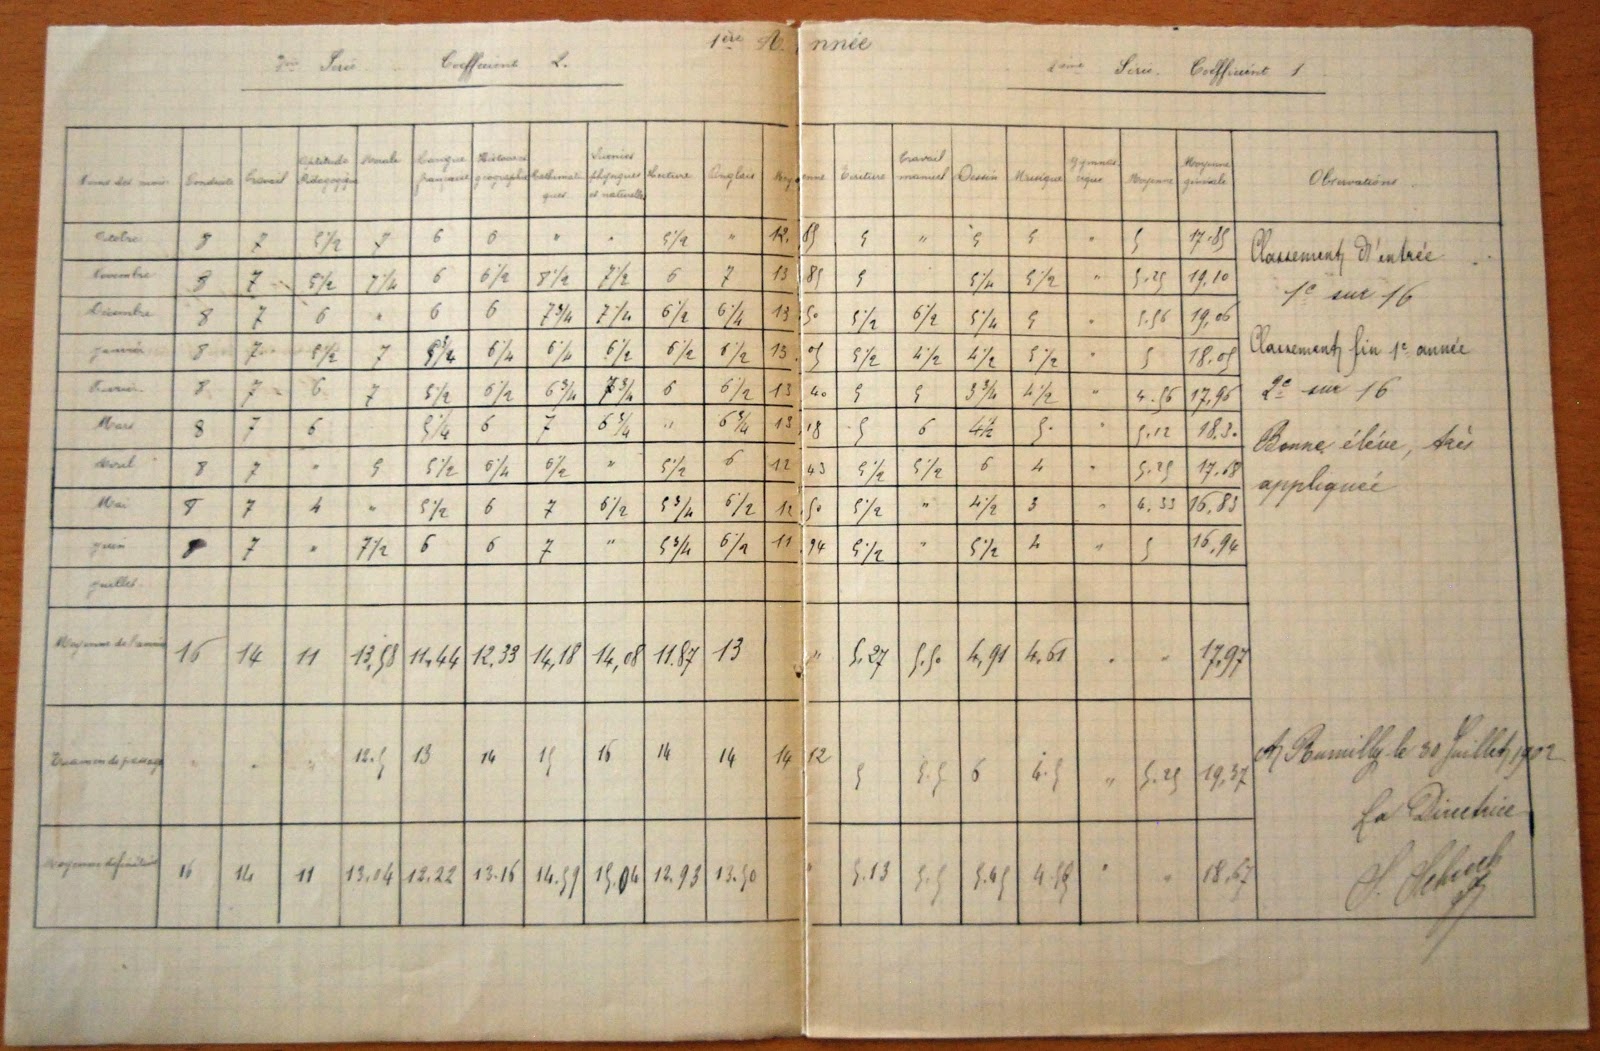 1ère Année
1ère Série Coefficient 2.
2ème Série. Coefficient 1
Noms des mois Conduite Travail Aptitude Pédagogique Morale Langue française Histoire géographie Mathématiques Sciences physiques et naturelles Lecture Anglais Moyenne Ecriture Travail manuel Dessin Musique Gymnastique Moyenne Moyenne générale Observations
Octobre 8 7 5 1/2 7 6 6 " " 5 1/2 " 12,85 5 " 5 5 " 5 17.85
Novembre 8 7 5 1/2 7 1/4 6 6 1/2 8 1/2 7 1/2 6 7 13 85 5 5 1/4 5 1/2 " 5.25 19,10
Décembre 8 7 6 " 6 6 7 3/4 7 1/4 6 1/2 6 1/4 13 50 5 1/2 6 1/2 5 1/4 5 " 5.56 19,06
Janvier 8 7 5 1/2 7 5 3/4 6 1/4 6 1/4 6 1/2 6 1/2 6 1/2 13.05 5 1/2 4 1/2 4 1/2 5 1/2 " 5 18.05
Février 8 7 6 7 5 1/2 6 1/2 6 3/4 7 3/4 6 6 1/2 13 40 5 5 3 3/4 4 1/2 " 4.56 17,96
Mars 8 7 6 5 1/4 6 7 6 3/4 " 6 3/4 13,18 5 6 4 1/2 5. " 5.12 18.30
Avril 8 7 " 5 5 1/2 6 1/4 6 1/2 " 5 1/2 6 12 43 5 1/2 5 1/2 6 4 " 5.25 17.68
Mai 8 7 4 " 5 1/2 6 7 6 1/2 5 3/4 6 1/2 12 50 5 1/2 " 4 1/2 3 " 4.33 16,83
Juin 8 7 " 7 1/2 6 6 7 " 5 3/4 6 1/2 11.94 5 1/2 " 5 1/2 4 " 5 16,94
Juillet.
Moyenne de l'année 16 14 11 13,58 11,44 12,33 14,18 14,08 11.87 13 " 5.27 5.50 4,91 4,61 . " 17,97
Examen de passage " " " 12.5 13 14 15 16 14 14 14 12 5 5.5 6 4.5 " 5.25 19,37
Moyenne définitive 16 14 11 13.04 12.22 13.16 14.59 15.04 12.93 13.50 " 5.13 5.5 5.45 4.56 " " 18,67
Classement d'entrée
1e sur 16
Classement fin 1e année
2e sur 16
Bonne élève, très
appliquée
A Rumilly le 30 Juillet 1902
La Directrice